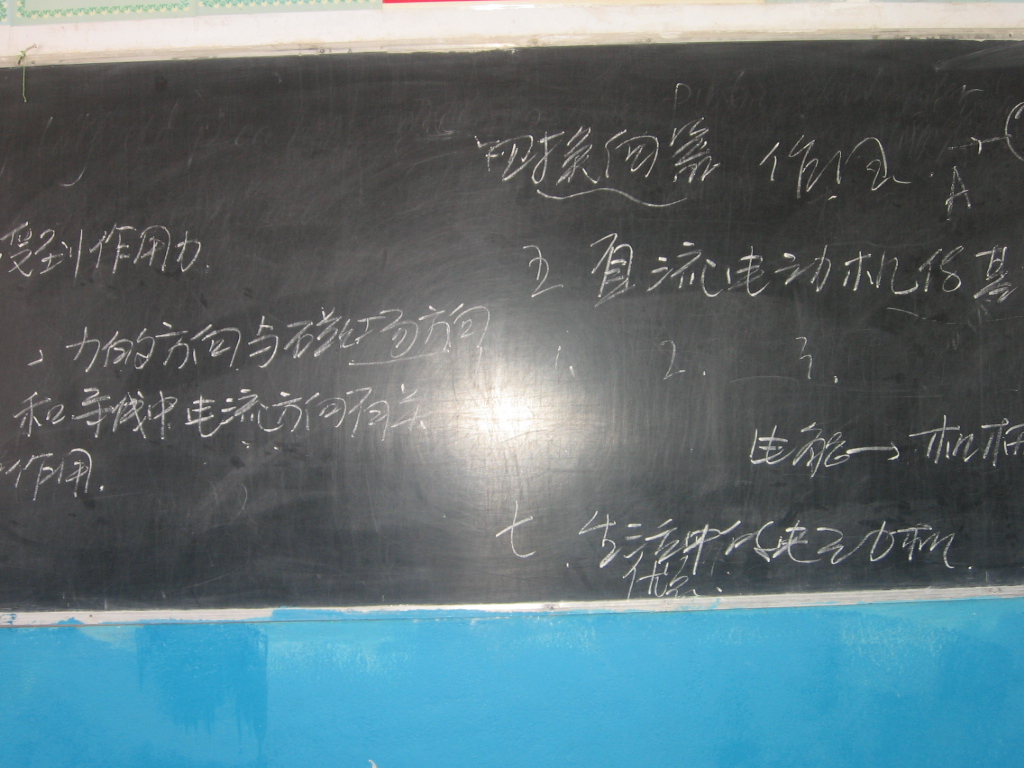 受到作用力.
、力的方向与磁场方向
和导线中电流方向有关
作用.
四换向器 作用.
A
五 直流电动机的基
1. 2. 3.
电能→机械
七. 生活中的电动机
优点: